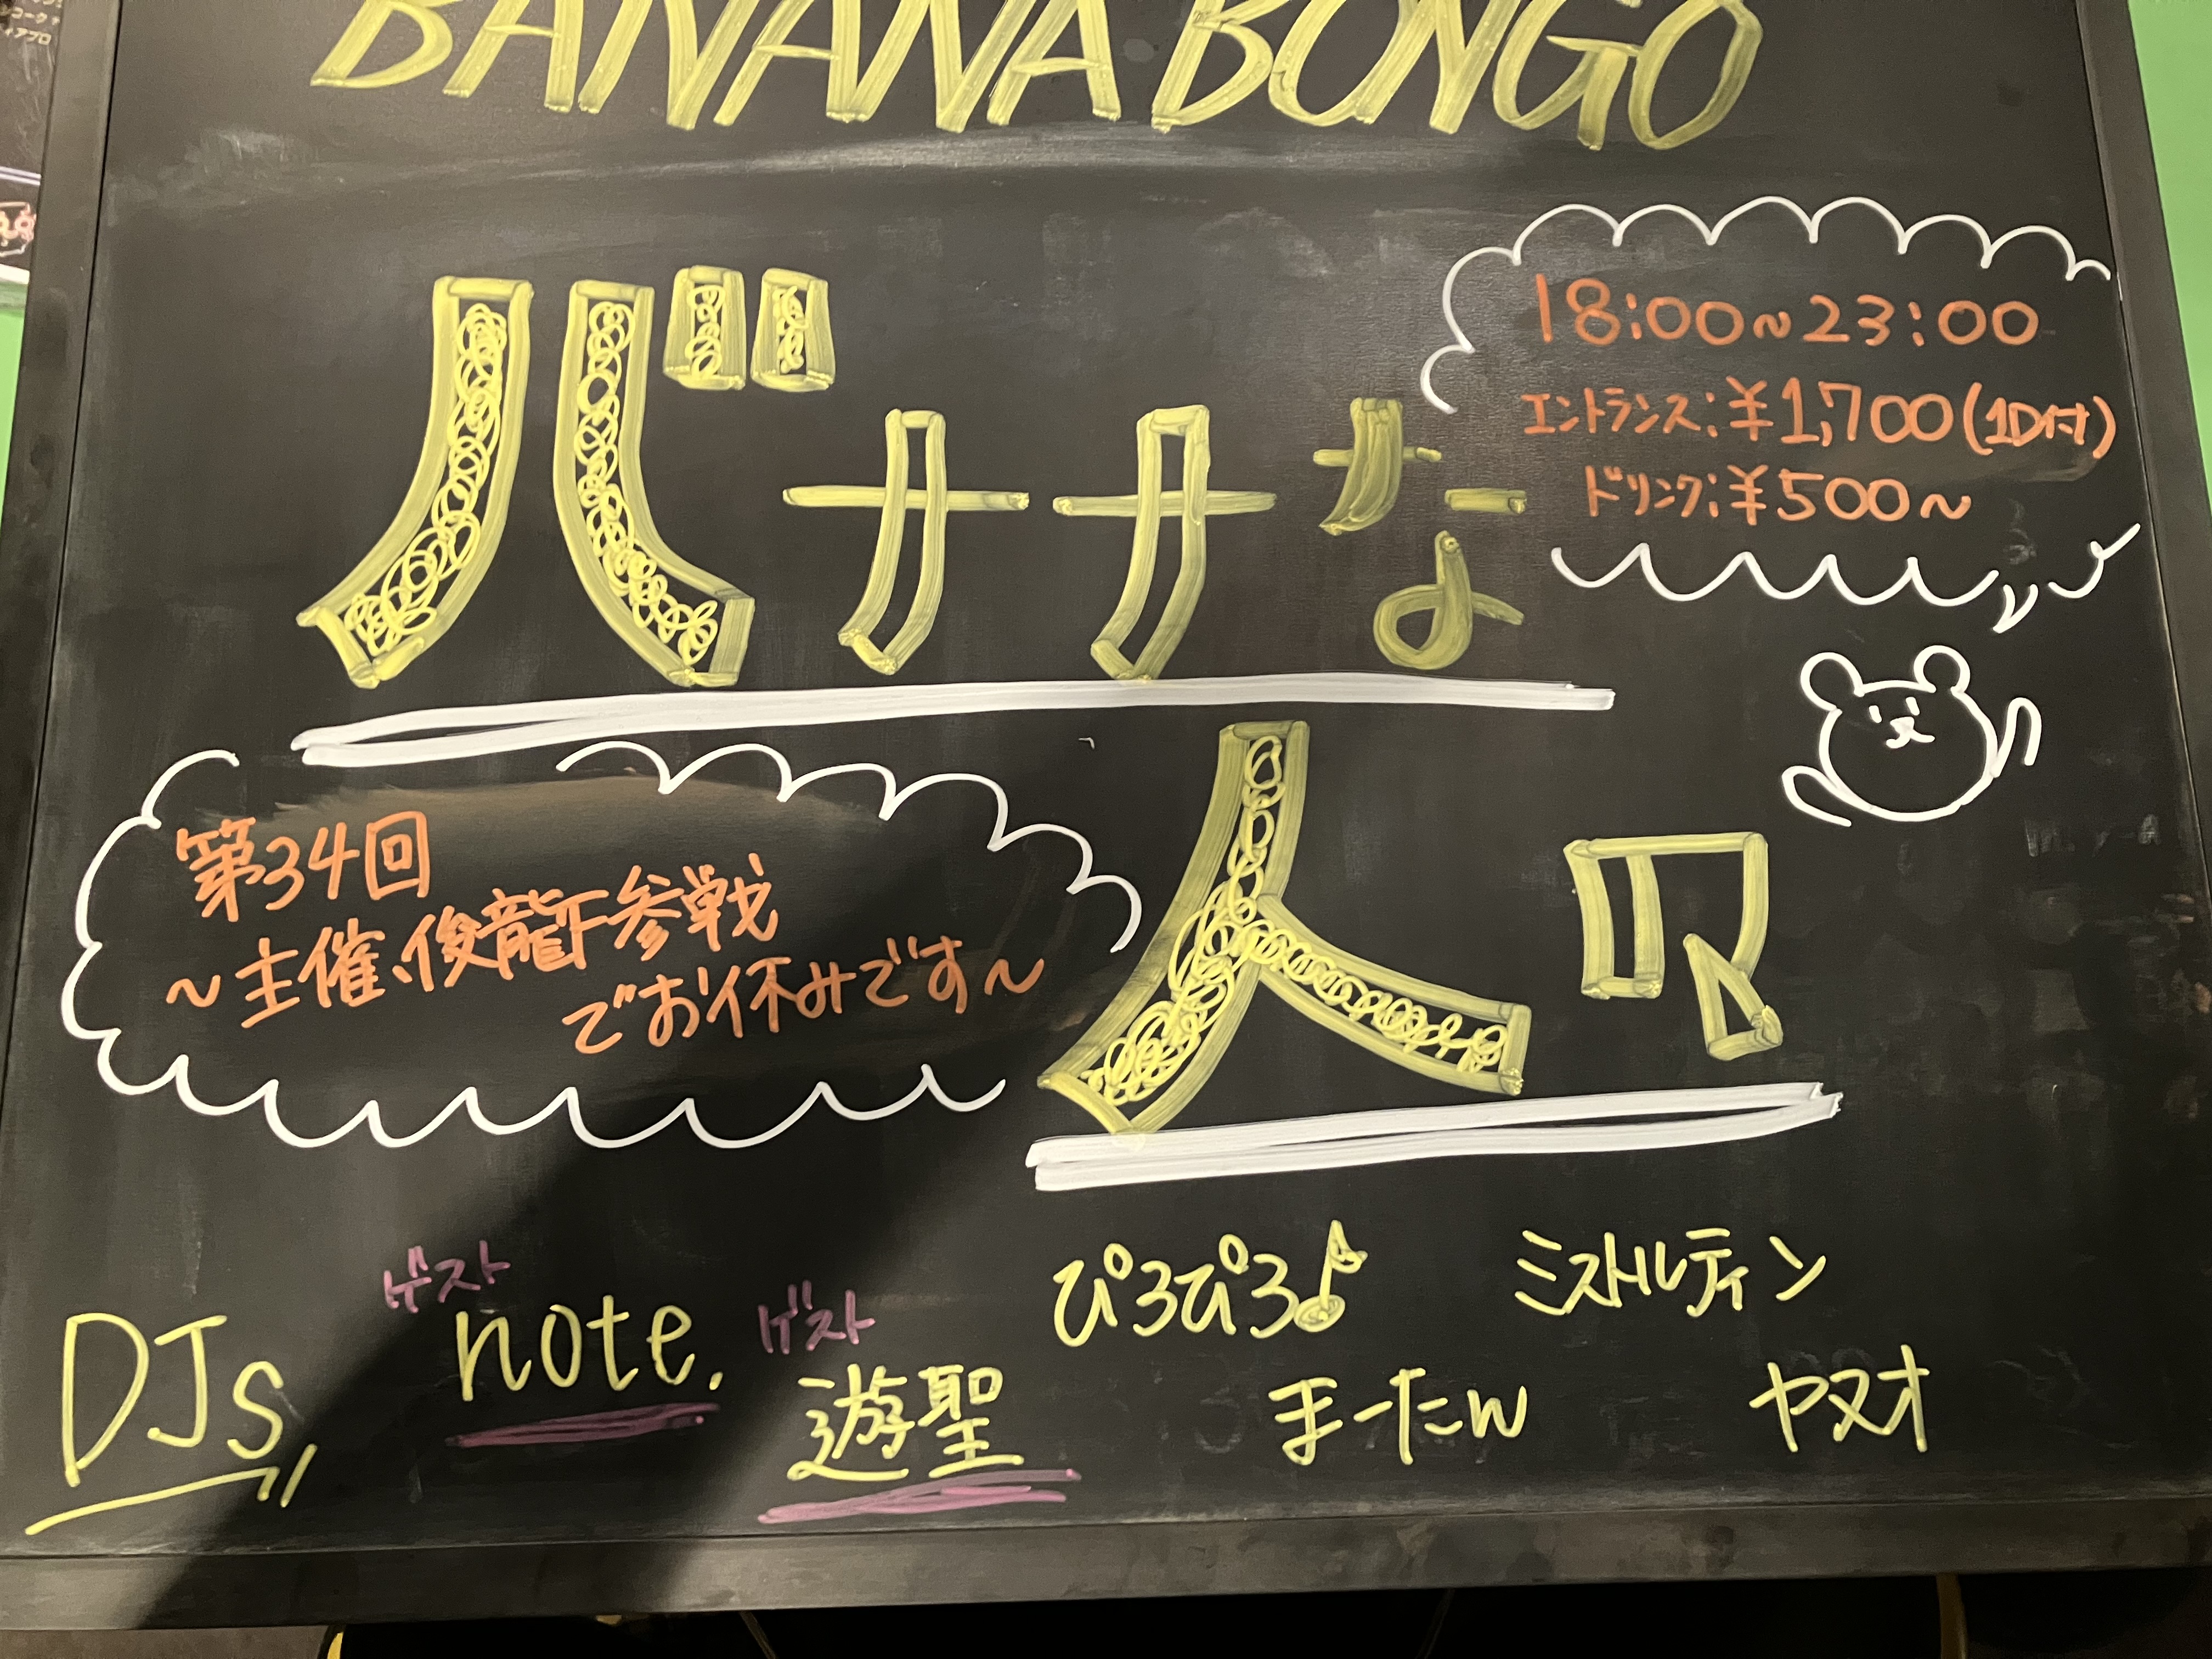 BANANA BONGO
バナナな
18:00~23:00
エントランス:¥1,700(1D付)
ドリンク:¥500~
人
第34回
~主催、俊龍F参戦
でお休みです~
DJs
ゲスト
note.
ゲスト
遊聖
ぴろぴろ♪
ミストルティン
まーたん
ヤヌオ